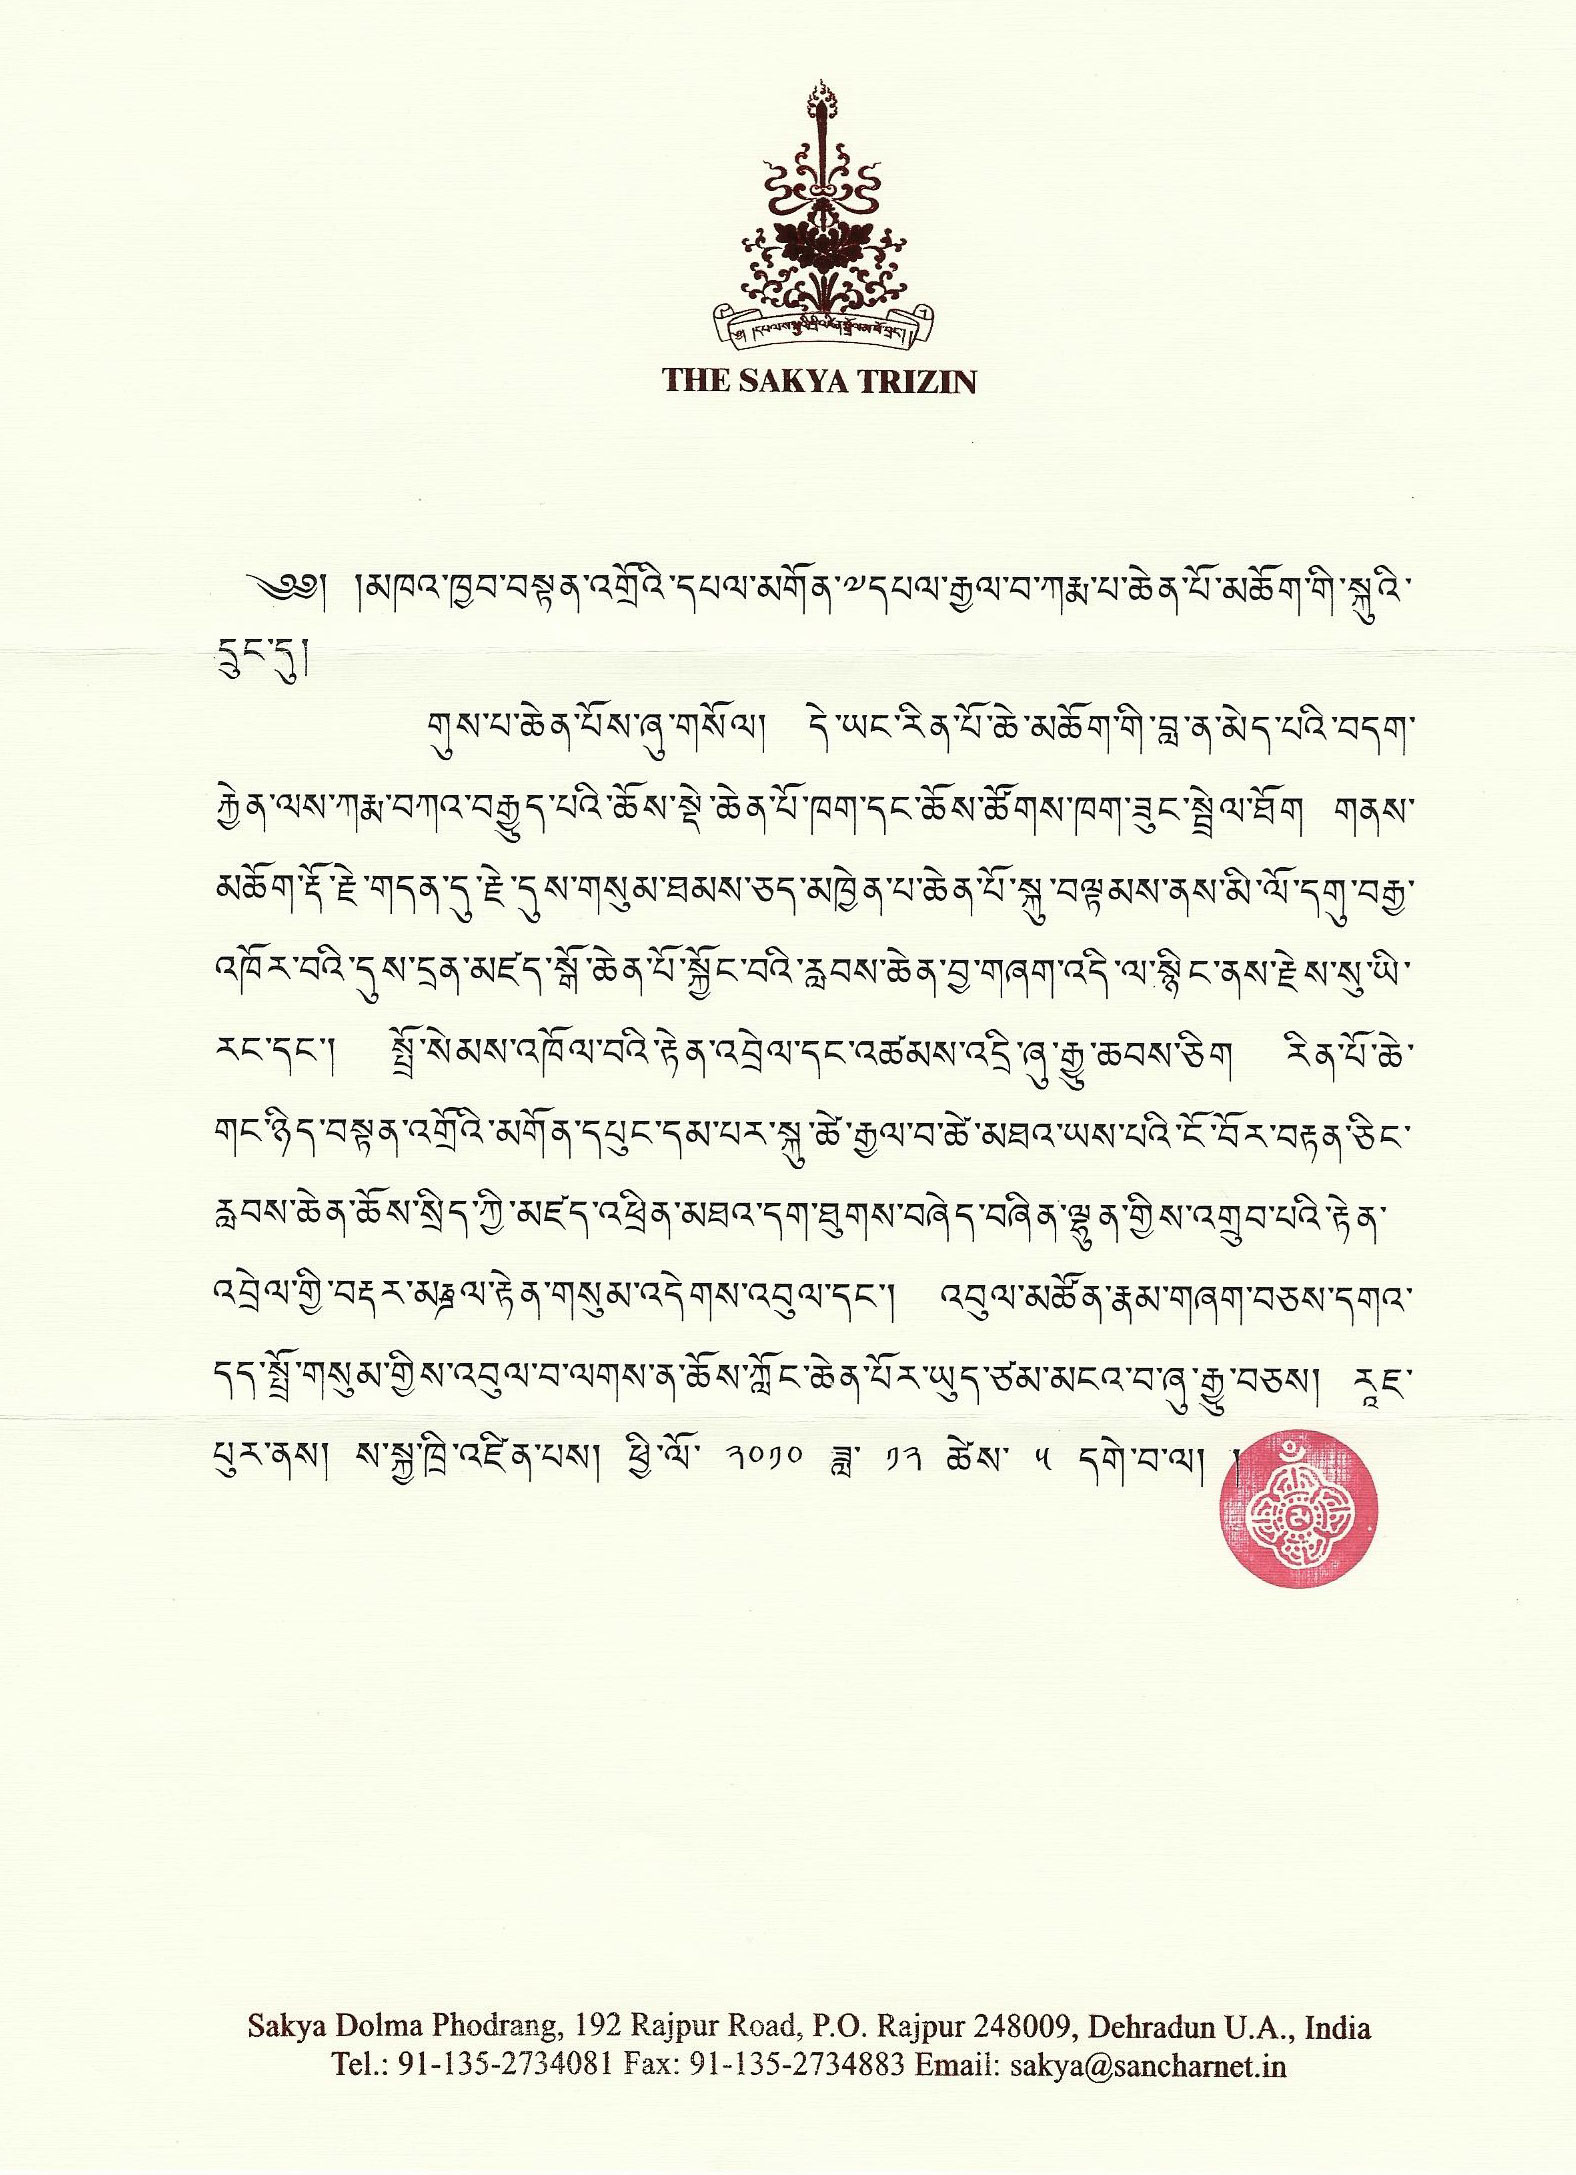 ༄༅། །དཔལ་ས་སྐྱའི་ཁྲི་འཛིན་སྒྲོལ་མ་ཕོ་བྲང་། །
THE SAKYA TRIZIN
༄༅། །མཁའ་ཁྱབ་བསྟན་འགྲོའི་དཔལ་མགོན་༧དཔལ་རྒྱལ་བ་ཀརྨ་པ་ཆེན་པོ་མཆོག་གི་སྐུའི་
དྲུང་དུ།
གུས་པ་ཆེན་པོས་ཞུ་གསོལ། དེ་ཡང་རིན་པོ་ཆེ་མཆོག་གི་བླ་ན་མེད་པའི་བདག་
རྐྱེན་ལས་ཀརྨ་བཀའ་བརྒྱུད་པའི་ཆོས་སྡེ་ཆེན་པོ་ཁག་དང་ཆོས་ཚོགས་ཁག་ཟུང་སྦྲེལ་ཐོག གནས་
མཆོག་རྡོ་རྗེ་གདན་དུ་རྗེ་དུས་གསུམ་ཐམས་ཅད་མཁྱེན་པ་ཆེན་པོ་སྐུ་བལྟམས་ནས་མི་ལོ་དགུ་བརྒྱ་
འཁོར་བའི་དུས་དྲན་མཛད་སྒོ་ཆེན་པོ་སྐྱོང་བའི་རླབས་ཆེན་བྱ་གཞག་འདི་ལ་སྙིང་ནས་རྗེས་སུ་ཡི་
རང་དང་། སྤྲོ་སེམས་འཁོལ་བའི་རྟེན་འབྲེལ་དང་འཚམས་འདྲི་ཞུ་རྒྱུ་ཆབས་ཅིག རིན་པོ་ཆེ་
གང་ཉིད་བསྟན་འགྲོའི་མགོན་དཔུང་དམ་པར་སྐུ་ཚེ་རྒྱལ་བ་ཚེ་མཐའ་ཡས་པའི་ངོ་བོར་བརྟན་ཅིང་
རླབས་ཆེན་ཆོས་སྲིད་ཀྱི་མཛད་འཕྲིན་མཐའ་དག་ཐུགས་བཞེད་བཞིན་ལྷུན་གྱིས་འགྲུབ་པའི་རྟེན་
འབྲེལ་གྱི་བརྡར་མཎྜལ་རྟེན་གསུམ་འདེགས་འབུལ་དང་། འབུལ་མཚོན་རྣམ་གཞག་བཅས་དགའ་
དད་སྤྲོ་གསུམ་གྱིས་འབུལ་བ་ལགས་ན་ཆོས་ཀློང་ཆེན་པོར་ཡུད་ཙམ་མངའ་བ་ཞུ་རྒྱུ་བཅས། རཱཇ་
པུར་ནས། ས་སྐྱ་ཁྲི་འཛིན་པས། ཕྱི་ལོ་ ༢༠༡༠ ཟླ་ ༡༢ ཚེས་ ༥ དགེ་བ་ལ། །
Sakya Dolma Phodrang, 192 Rajpur Road, P.O. Rajpur 248009, Dehradun U.A., India
Tel.: 91-135-2734081 Fax: 91-135-2734883 Email: sakya@sancharnet.in